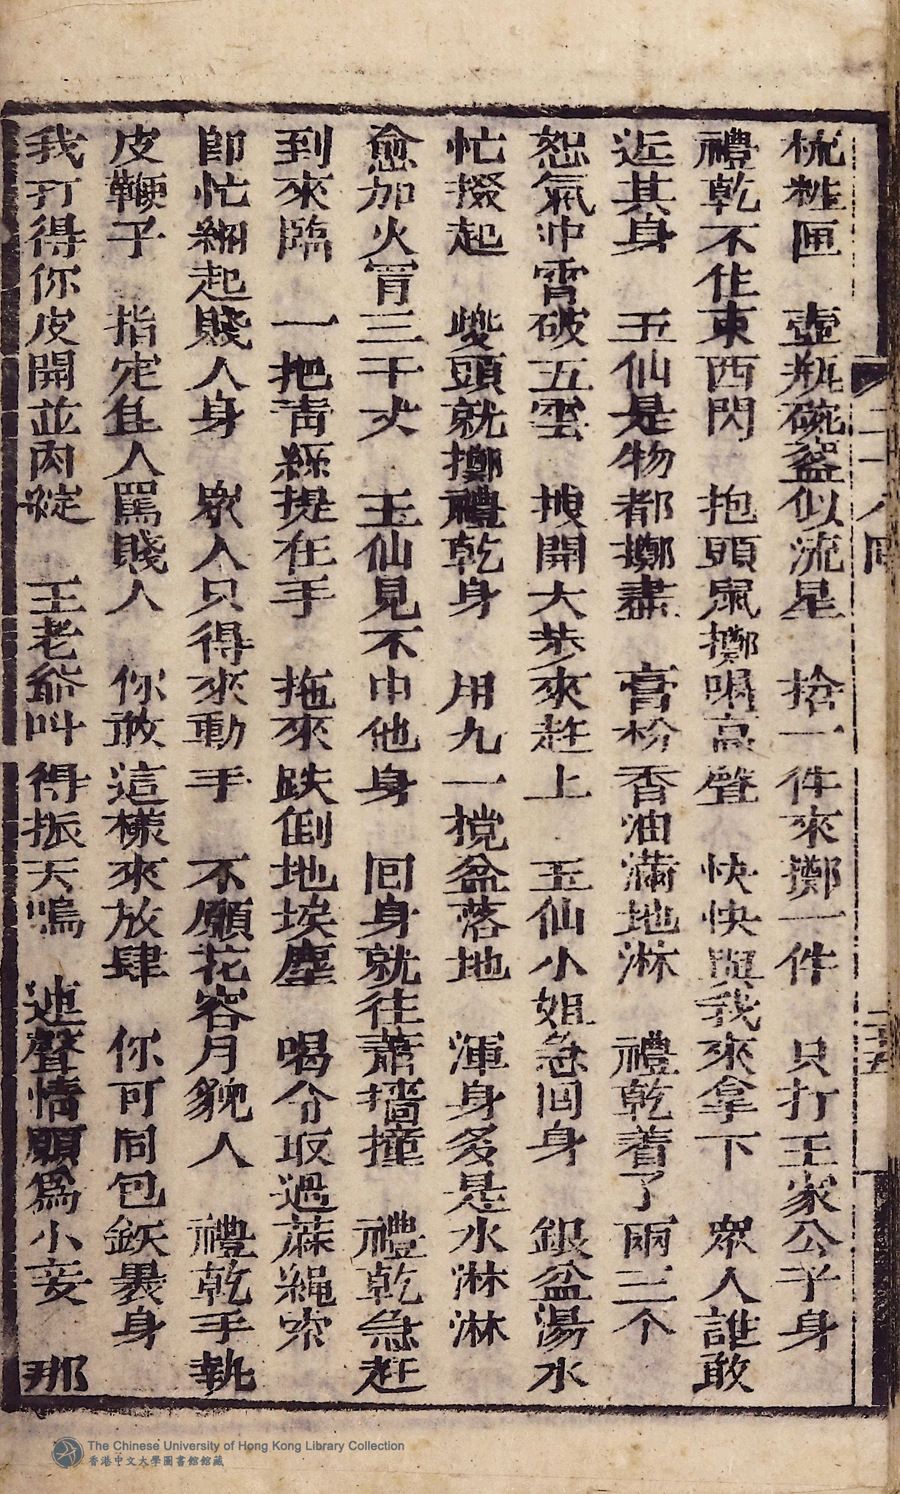 梳粧匣　壺瓶碗盞似流星　捨一件來擲一件　只打王家公子身
禮乾不住東西閃　抱頭鼠擲喝高聲　快快與我來拿下　眾人誰敢
近其身　玉仙是物都擲盡　膏粉香油滿地淋　禮乾着了兩三个
怨氣冲霄破五雲　拽開大步來赶上　玉仙小姐急回身　銀盆湯水
忙掇起　劈頭就擲禮乾身　用九一㨪盆落地　渾身多是水淋淋
愈加火冐三千丈　玉仙見不中他身　回身就往蕭墻撞　禮乾急赶
到來臨　一把青絲提在手　拖來跌倒地埃塵　喝令取過蔴繩索
即忙綑起賤人身　眾人只得來動手　不願花容月貌人　禮乾手執
皮鞭子　指定隹人罵賤人　你敢這樣來放肆　你可同包鉃褁身
我打得你皮開並肉綻　王老爺叫得振天鳴　連聲情願爲小妾　那
二十八回
二十五
The Chinese University of Hong Kong Library Collection
香港中文大學圖書館館藏